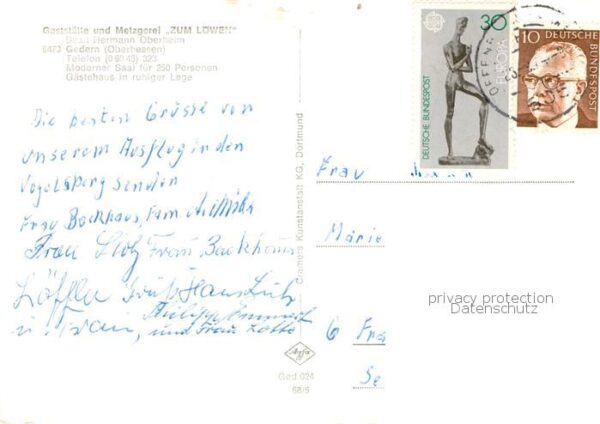 Gaststätte und Metzgerei „ZUM LÖWEN“
Bes.: Hermann Oberheim
6473 Gedern (Oberhessen)
Telefon (0 60 45) 323
Moderner Saal für 250 Personen
Gästehaus in ruhiger Lage
Die besten Grüsse von
unserem Ausflug in den
Vogelsberg senden
Frau Backhaus, Fam
Frau Frau Backhaus
Löffler Gruß Hans
Philipp Emmert
u. Frau, und Frau Lotte
Cramers Kunstanstalt KG, Dortmund
Agfa
Ged 024
68/6
30
EUROPA
DEUTSCHE BUNDESPOST
10
DEUTSCHE BUNDESPOST
OFFENB
Frau
Marie
6 Fra
Se
privacy protection
Datenschutz